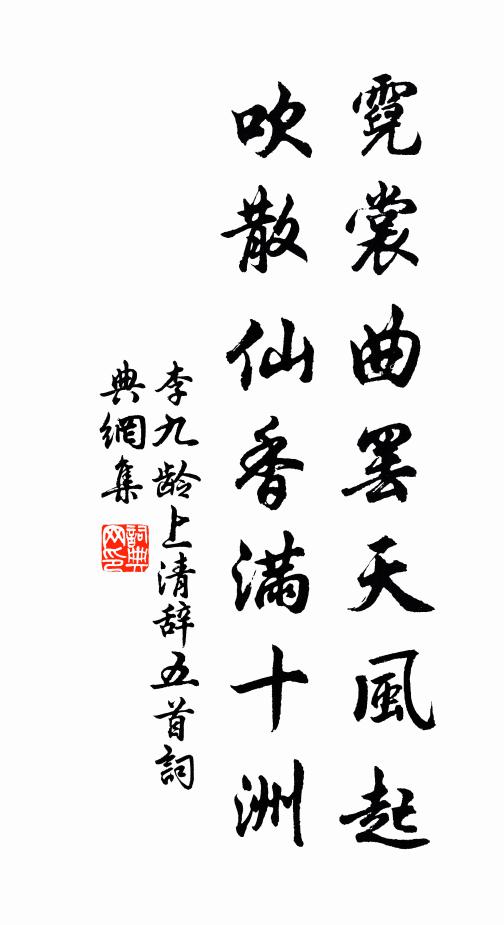 霓裳曲罢天風起
吹散仙香满十洲
李九龄上清辞五首詞
典網集
詞典网印